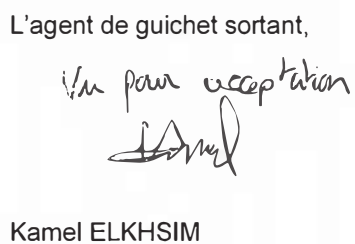 L'agent de guichet sortant,
Vu pour acceptation
Kamel ELKHSIM